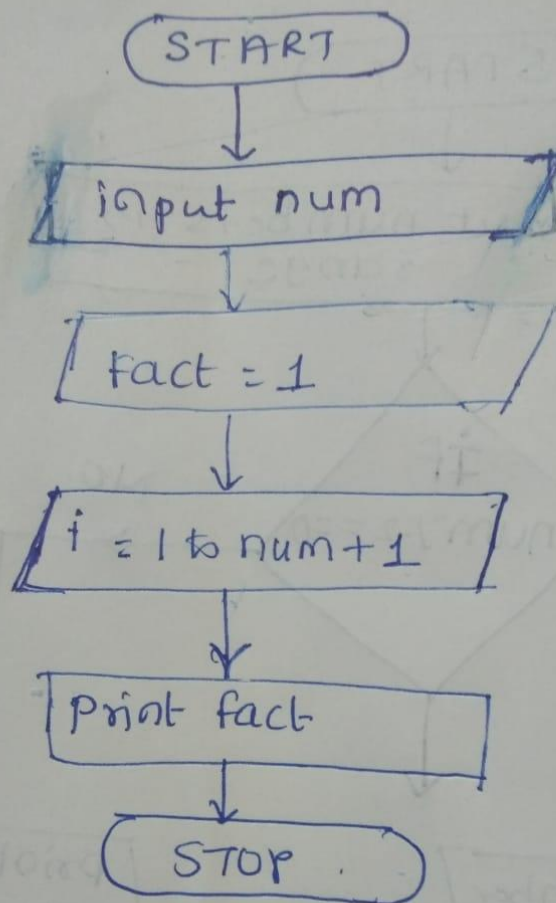 START
input num
Fact = 1
i = 1 to num + 1
Print fact
STOP